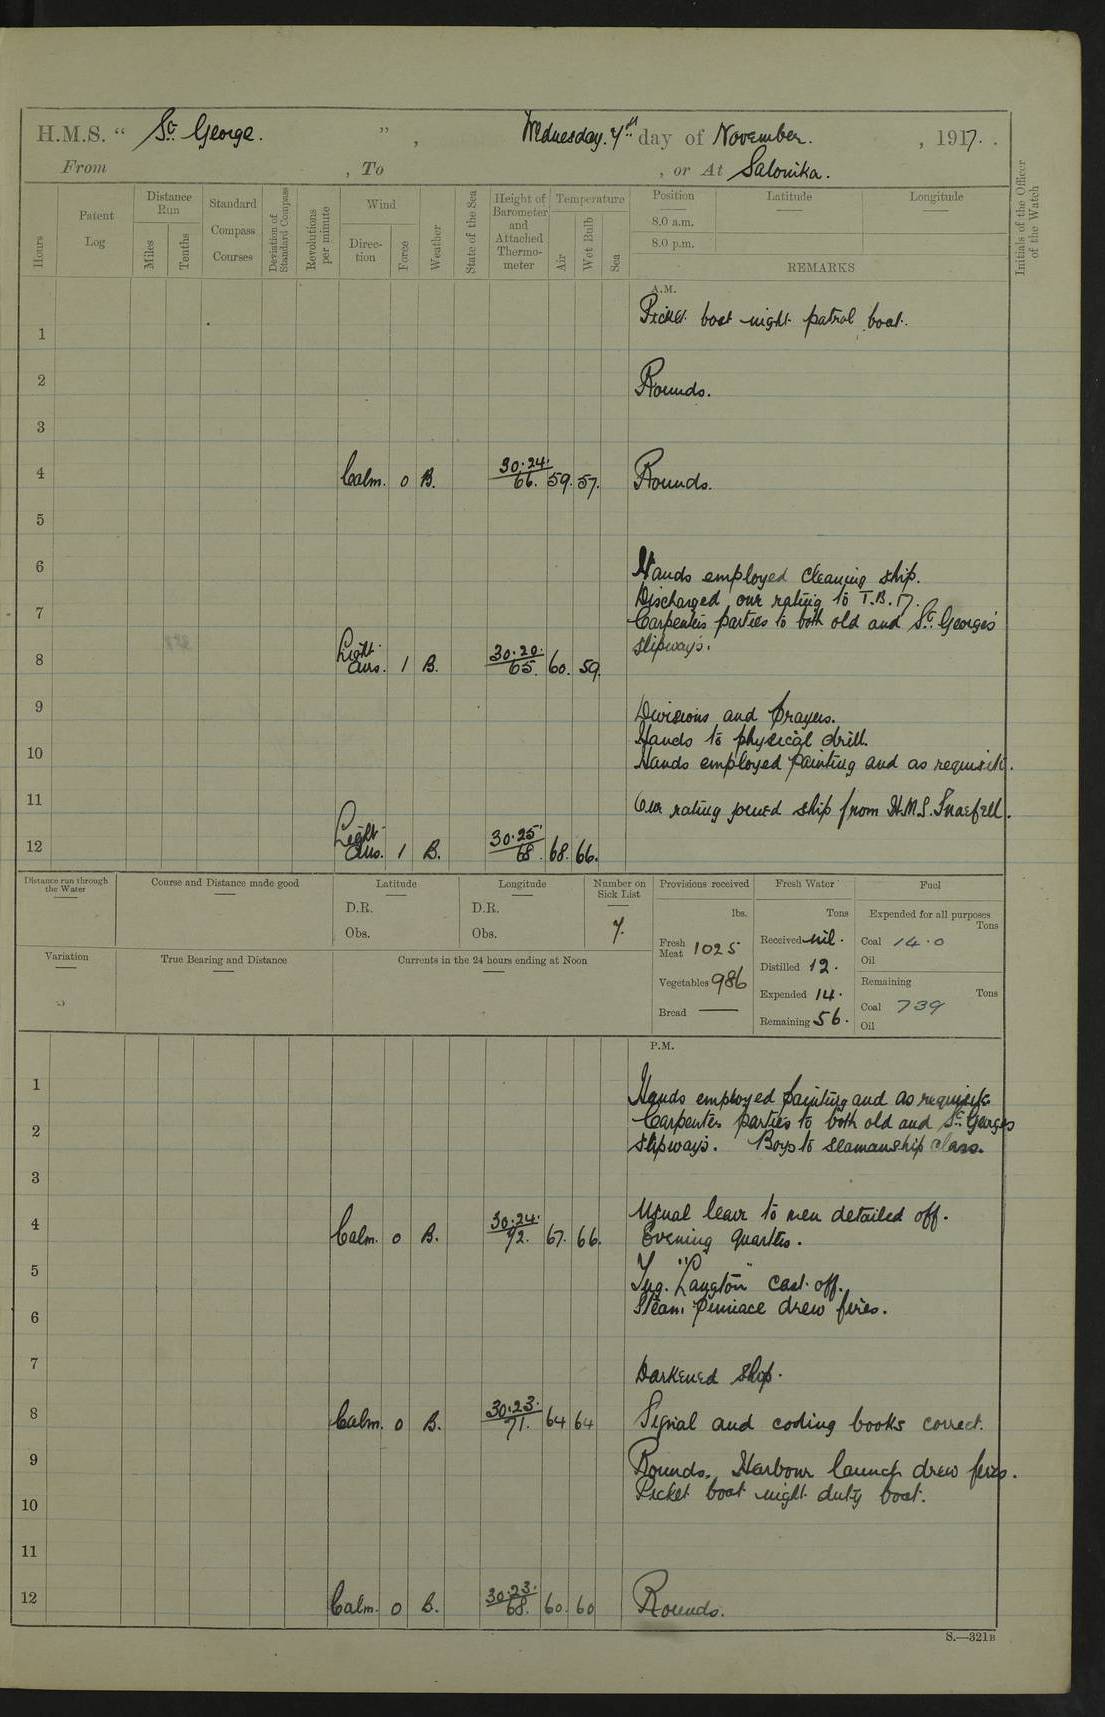 H.M.S. “ St. George. ” , Wednesday. 7th day of November. , 1917.
From , To , or At Salonika.
Hours
Patent Log
Distance Run
Miles
Tenths
Standard Compass Courses
Deviation of Standard Compass
Revolutions per minute
Wind
Direction
Force
Weather
State of the Sea
Height of Barometer and Attached Thermometer
Temperature
Air
Wet Bulb
Sea
Position Latitude Longitude
8.0 a.m.
8.0 p.m.
REMARKS
Initials of the Officer of the Watch
A.M.
1 Picket boat night patrol boat.
2 Rounds.
3
4 Calm. 0 B. 30.24. 66. 59. 57. Rounds.
5
6 Hands employed cleaning ship.
Discharged one rating to T.B. 17.
7 Carpenters parties to both old and St. Georges
slipways.
8 Light airs. 1 B. 30.20. 65. 60. 59.
9 Divisions and Prayers.
Hands to physical drill.
10 Hands employed painting and as requisite.
11 One rating joined ship from H.M.S. Snaefell.
12 Light airs. 1 B. 30.25 68. 68. 66.
Distance run through the Water
Course and Distance made good
Latitude
D.R.
Obs.
Longitude
D.R.
Obs.
Number on Sick List
7.
Provisions received
lbs.
Fresh Meat 1025
Vegetables 986
Bread —
Fresh Water
Tons
Received nil.
Distilled 12.
Expended 14.
Remaining 56.
Fuel
Expended for all purposes
Tons
Coal 14.0
Oil
Remaining
Tons
Coal 739
Oil
Variation
True Bearing and Distance
Currents in the 24 hours ending at Noon
P.M.
1 Hands employed painting and as requisite
2 Carpenters parties to both old and St. Georges
slipways. Boys to seamanship class.
3
4 Usual leave to men detailed off.
Calm. 0 B. 30.24. 72. 67. 66. Evening quarters.
5 Tug. "Langton" cast off.
6 Steam pinnace drew fires.
7 Darkened ship.
8 Calm. 0 B. 30.23. 71. 64 64 Signal and coding books correct.
9 Rounds. Harbour launch drew fires.
10 Picket boat night duty boat.
11
12 Calm. 0 B. 30.23. 68. 60. 60 Rounds.
S.—321B